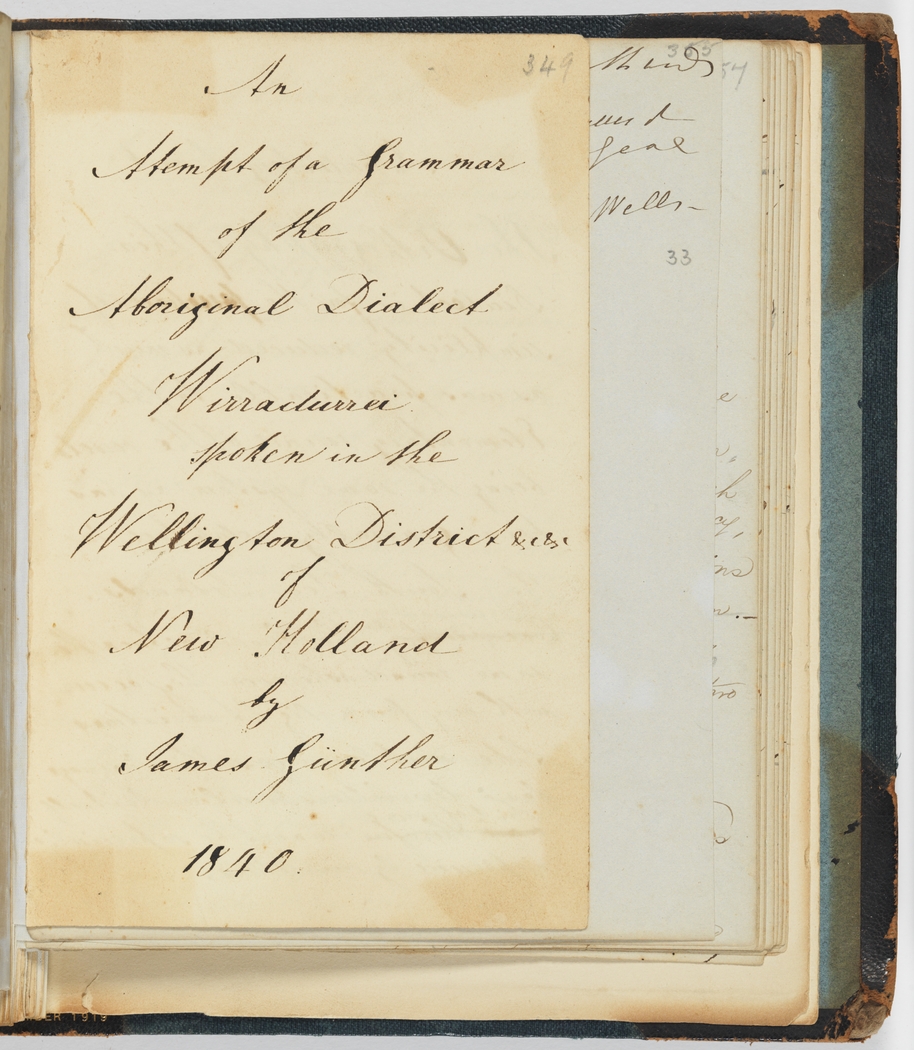 349
An
Attempt of a Grammar
of the
Aboriginal Dialect
Wirradurrei
spoken in the
Wellington District &c &c
of
New Holland
by
James Günther
1840.
365
54
Wells-
33
1919